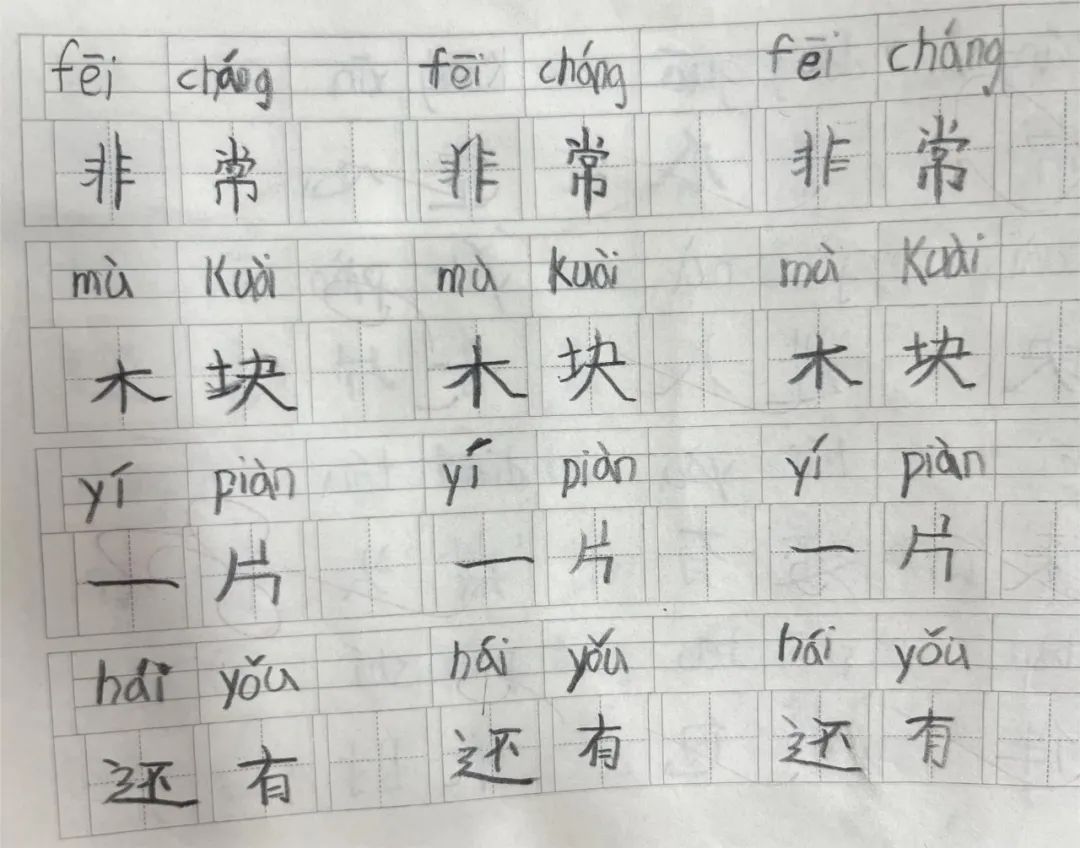 fēi cháng fēi cháng fēi cháng
非常 非常 非常
mù Kuài mù Kuài mù Kuài
木块 木块 木块
yí piàn yí piàn yí piàn
一片 一片 一片
hái yǒu hái yǒu hái yǒu
还有 还有 还有